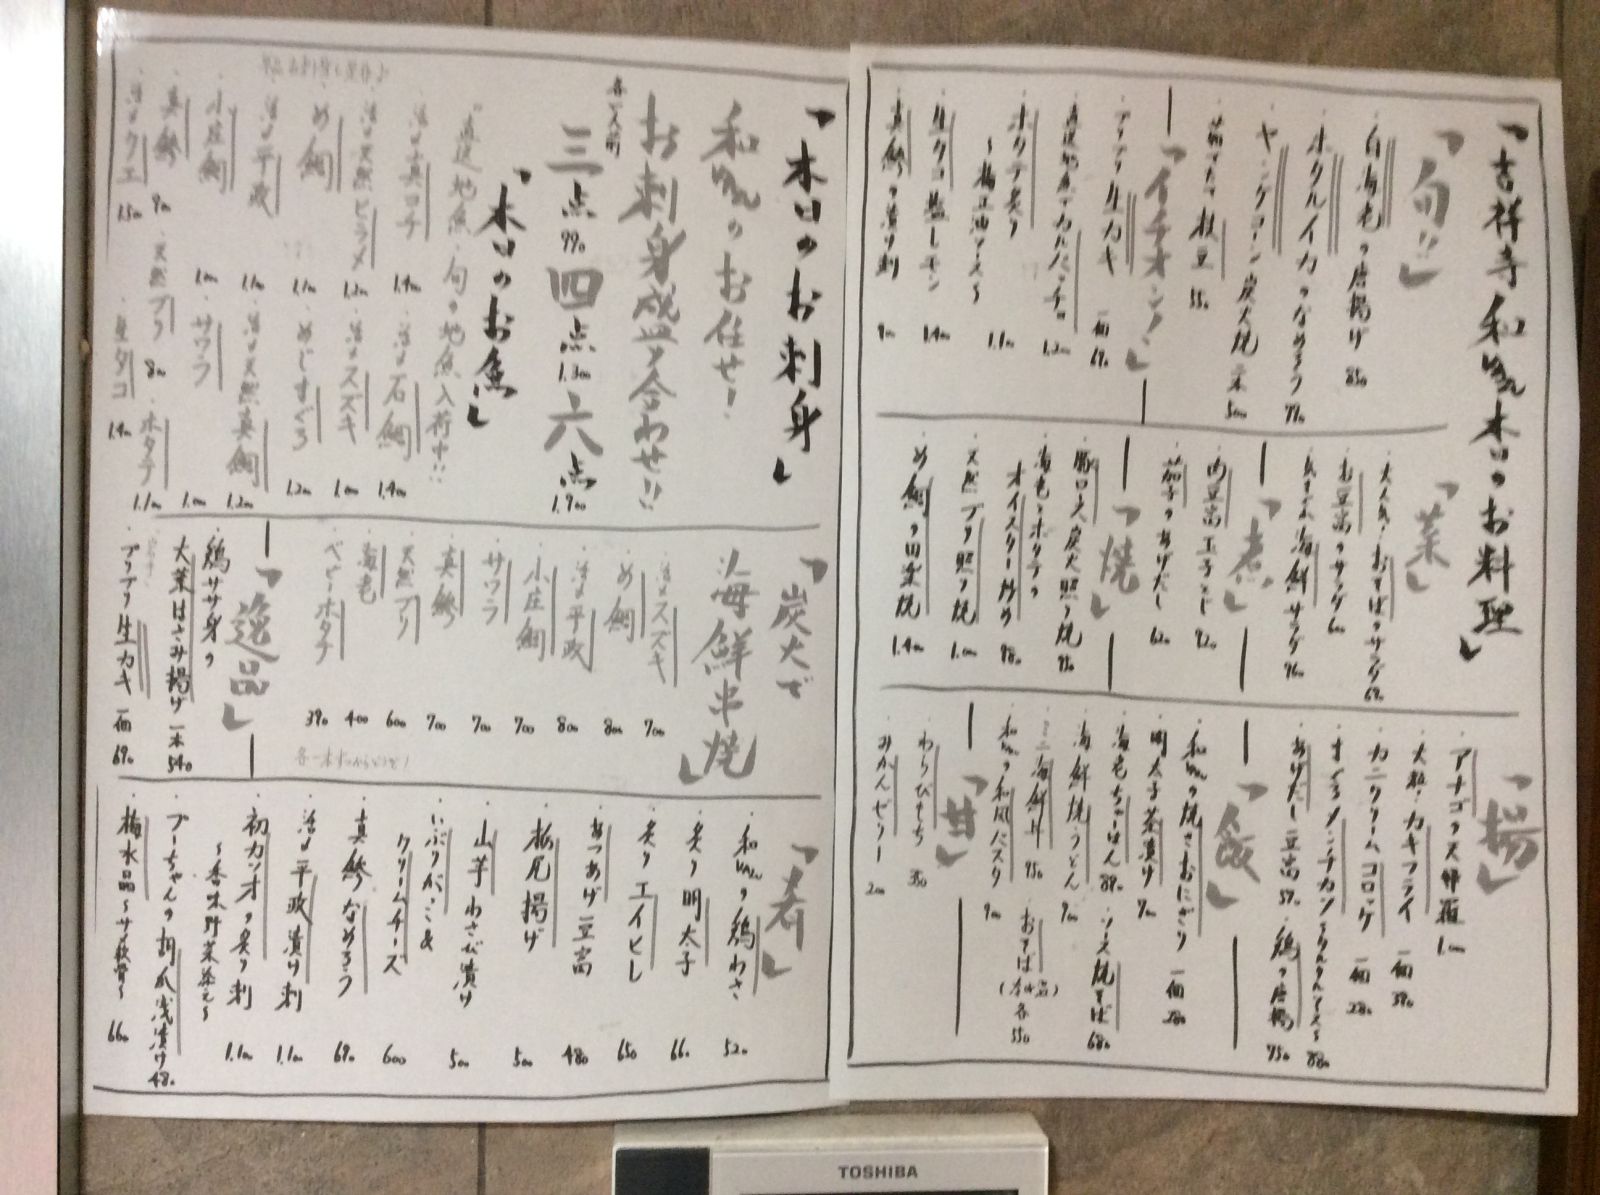 「吉祥寺 和 本日のお料理」
「旬!!」
・白海老の唐揚げ 850
・ホタルイカのなめろう 770
・ヤングコーン炭火焼 二本 500
・茹でたて枝豆 550
「イチオシ!」
・プリプリ生カキ 一個 690
・直送地魚でカルパッチョ 1.200
・ホタテ炙り
～梅正油ソース～ 1.100
・生タコ塩レモン 1.400
・真鯵の漬け刺 900
「菜」
・大人気!おそばのサラダ 680
・お豆腐のサラダ 600
・海鮮サラダ 960
「煮」
・肉豆腐玉子とじ 920
・茄子のあげだし 620
「焼」
・豚ロース炭火照り焼 950
・海老とホタテの
オイスター炒め 980
・天然ブリ照り焼 1.000
・め鯛の田楽焼 1.400
「揚」
・アナゴの天婦羅 1.100
・大粒!カキフライ 一個 390
・カニクリームコロッケ 一個 280
・まぐろメンチカツ 880
・あげだし豆腐 570
・鶏の唐揚 750
「飯」
・和 の焼きおにぎり 一個 280
・明太子茶漬け 700
・海老ちゃーはん 890
・ソース焼そば 680
・海鮮焼うどん 900
・ミニ海鮮丼 950
・おそば(冷or温) 各550
・和 の和風パスタ 900
「甘」
・わらびもち 350
・みかんゼリー 200
「本日のお刺身」
和 のお任せ!
お刺身盛り合わせ!!
各一人前
三点 990 四点 1.300 六点 1.900
「本日のお魚」
"直送地魚・旬の地魚入荷中!!
・活〆真ゴチ 1.400
・活〆石鯛 1.400
・活〆天然ヒラメ 1.200
・活〆スズキ 1.000
・め鯛 1.100
・めじまぐろ 1.200
・活〆平政 1.100
・活〆天然真鯛 1.200
・小庄鯛 1.000
・サワラ 1.000
・真鯵 900
・天然ブリ 800
・ホタテ 1.100
・活〆クエ 1.500
・生タコ 1.400
「炭火で
海鮮串焼」
・活〆スズキ 700
・め鯛 800
・活〆平政 800
・小庄鯛 700
・サワラ 700
・真鯵 700
・天然ブリ 600
・海老 400
・ベビーホタテ 390
各一本ずつからどうぞ!
「逸品」
・鶏ササ身の
大葉はさみ揚げ 一本 540
・プリプリ生カキ 一個 690
「肴」
・和 の鶏わさ 520
・炙り明太子 660
・炙りエイヒレ 650
・あつあげ豆腐 480
・栃尾揚げ 500
・山芋わさび漬け 500
・いぶりがっこ&
クリームチーズ 600
・真鯵なめろう 690
・活〆平政漬け刺 1.100
・初カツオの炙り刺
～香味野菜添え～ 1.100
・プーちゃんの胡瓜浅漬け 480
・梅水晶～サメ軟骨～ 660
TOSHIBA